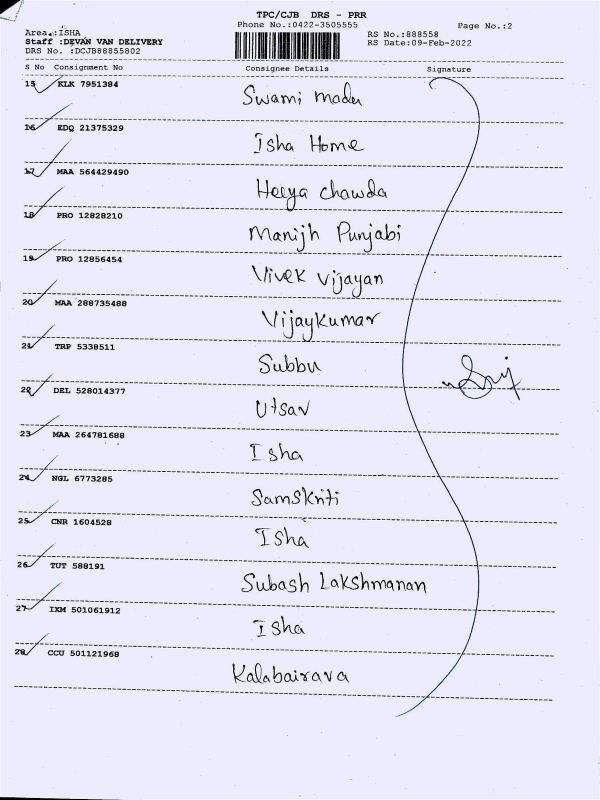 TPC/CJB DRS - PRR
Phone No.:0422-3505555
Page No.:2
Area.:ISHA
Staff :DEVAN VAN DELIVERY
DRS No. :DCJB88855802
RS No.:888558
RS Date:09-Feb-2022
S No Consignment No Consignee Details Signature
15 KLK 7951384
Swami madu
16 EDQ 21375329
Isha Home
17 MAA 564429490
Heeya chawda
18 PRO 12828210
Manijh Punjabi
19 PRO 12856454
Vivek Vijayan
20 MAA 288735488
Vijaykumar
21 TRP 5338511
Subbu
22 DEL 528014377
Utsav
23 MAA 264781688
Isha
24 NGL 6773285
Samskriti
25 CNR 1604528
Isha
26 TUT 588191
Subash Lakshmanan
27 IXM 501061912
Isha
28 CCU 501121968
Kalabairava